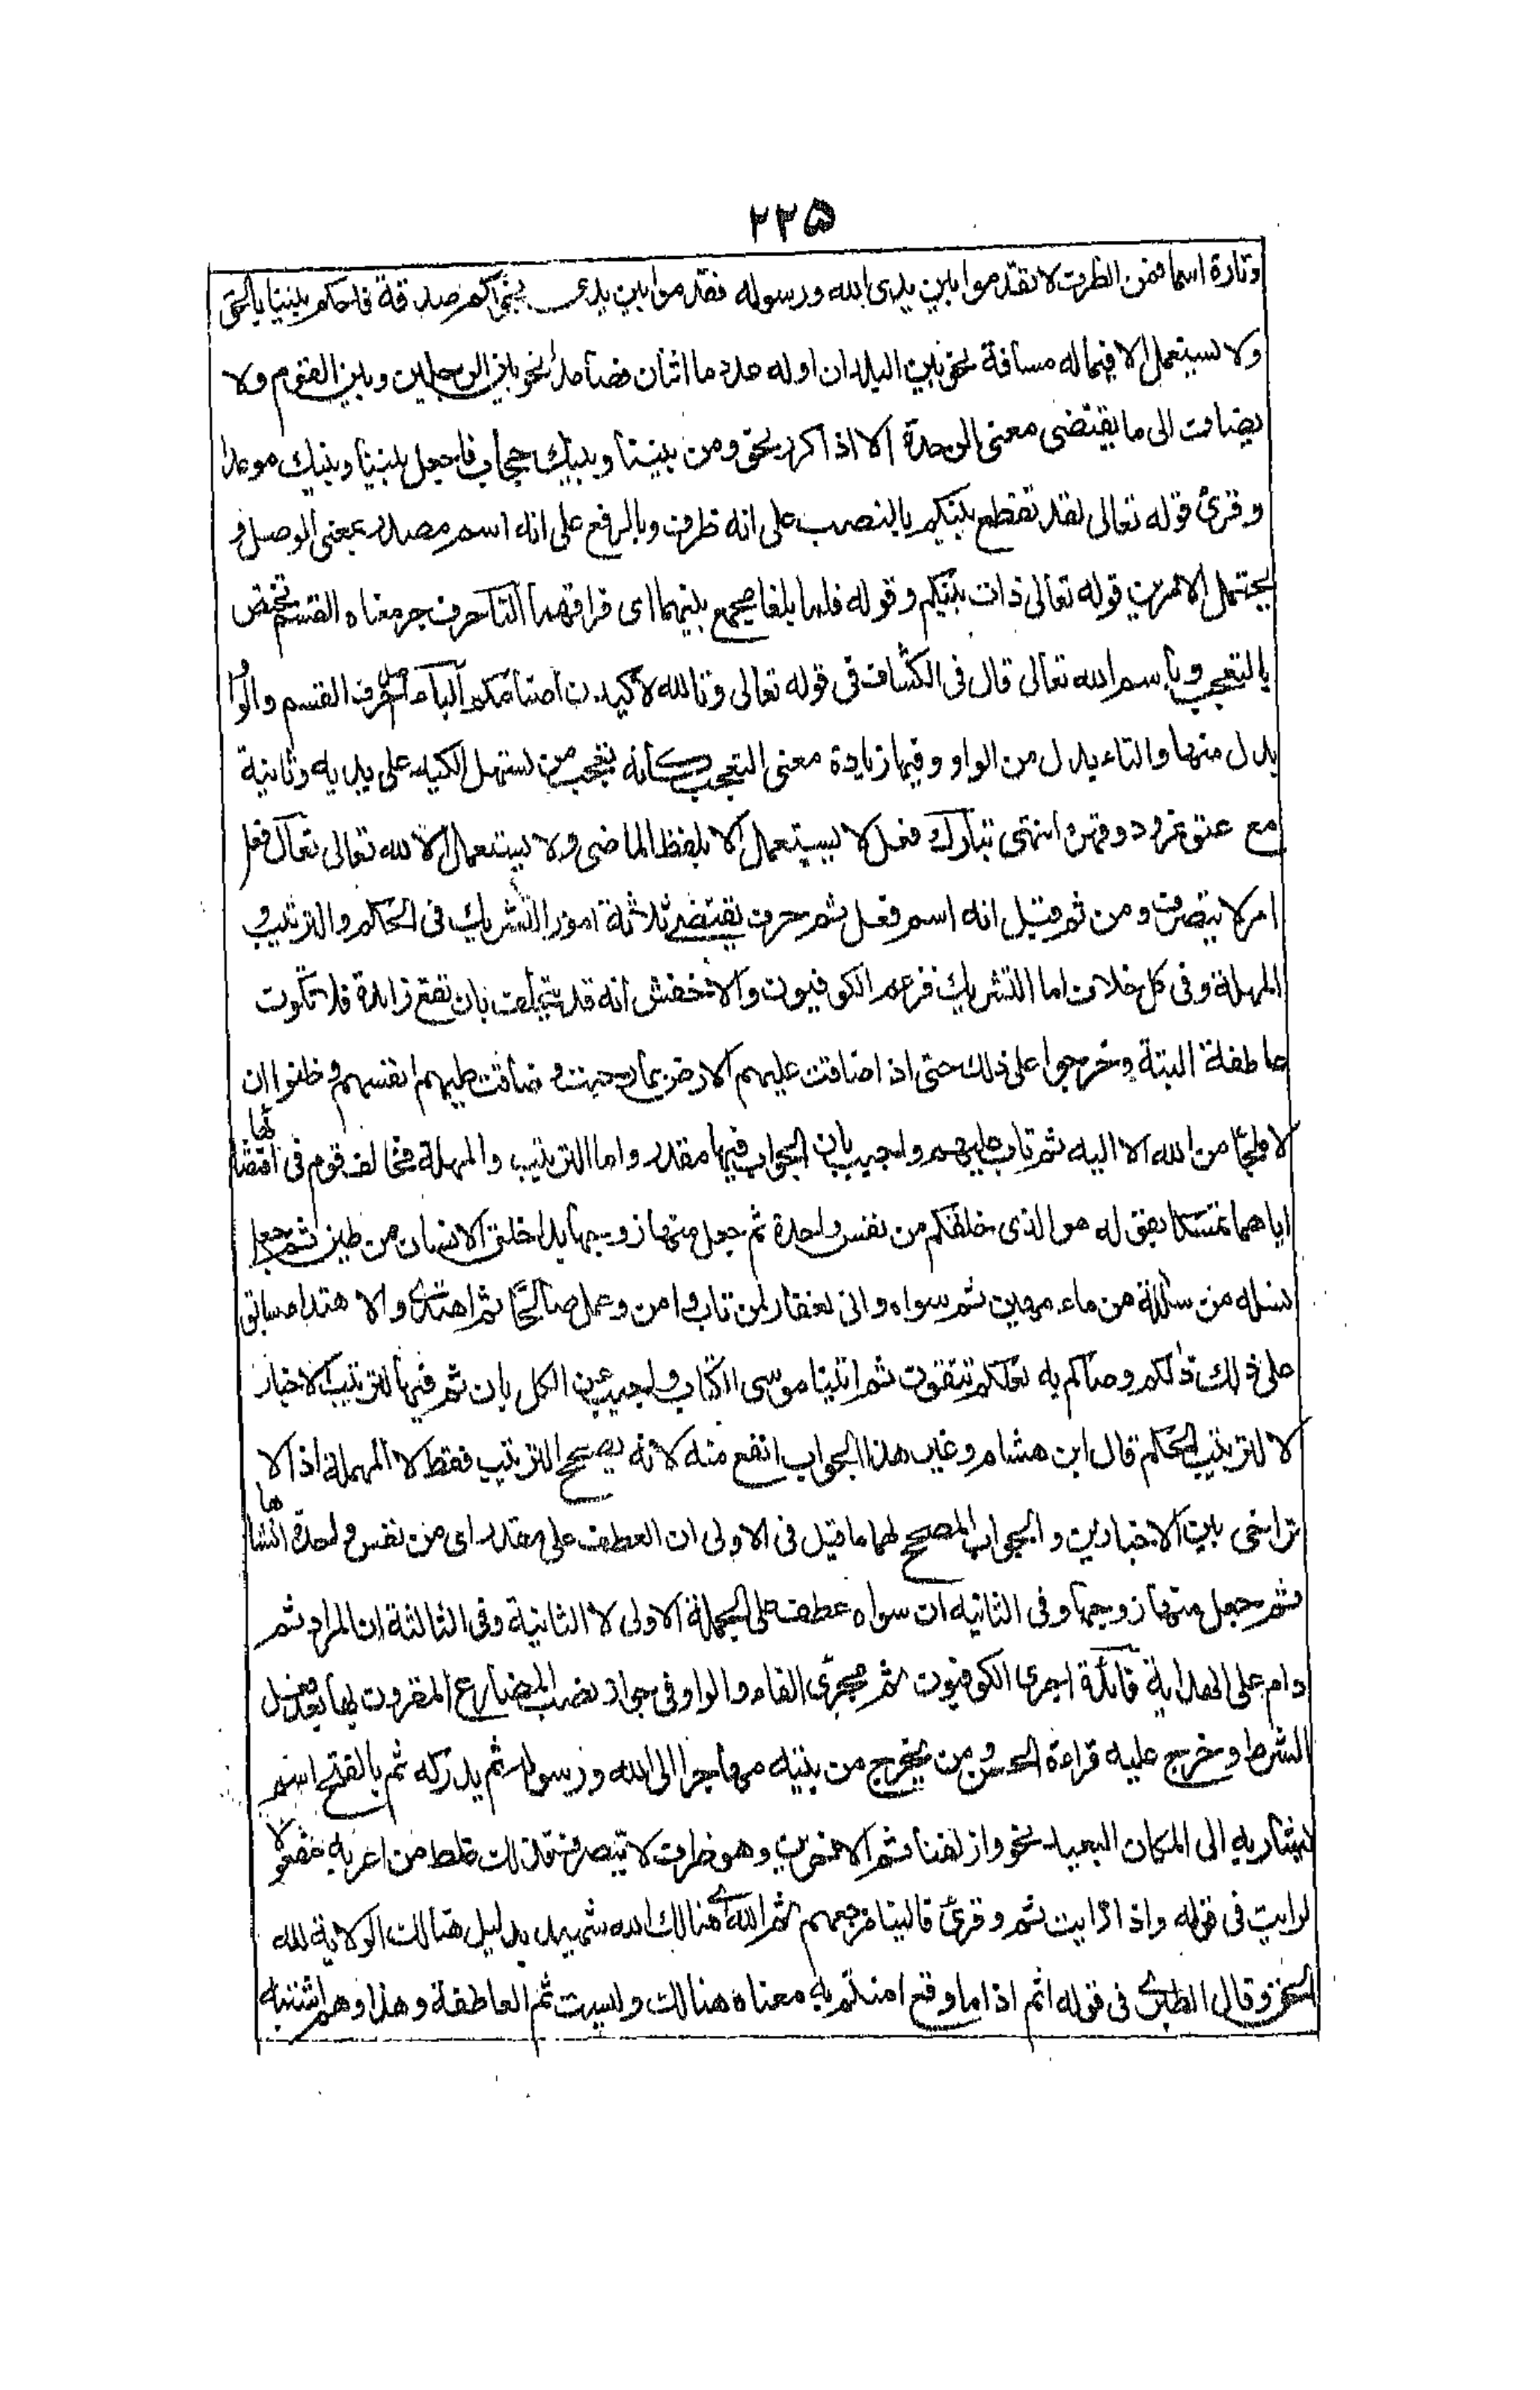 ٢٢٥
وتارة اسما فمن الظرف لا تقدموا بين يدى الله ورسوله فقدموا بين يدى نجواكم صدقة فاحكم بيننا بالحق
ولا يستعمل الا فيما له مسافة نحو بين البلدان او له عدد ما اثنان فصاعدا نحو بين الرجلين وبين القوم ولا
يضاف الى ما يقتضى معنى الوحدة الا اذا كرر نحو ومن بيننا وبينك حجاب فاجعل بيننا وبينك موعدا
وقرئ قوله تعالى لقد تقطع بينكم بالنصب على انه ظرف وبالرفع على انه اسم مصدر بمعنى الوصل و
يحتمل الامرين قوله تعالى ذات بينكم وقوله فلما بلغا مجمع بينهما اى فراقهما التاء حرف جر معناه القسم تختص
بالتعجب وباسم الله تعالى قال فى الكشاف فى قوله تعالى وتالله لاكيدن اصنامكم الباء اصل حرف القسم والواو
بدل منها والتاء بدل من الواو وفيها زيادة معنى التعجب كانه تعجب من تسهل الكيد على يديه وتاتيه
مع عتو نمرود وقهره انتهى تبارك فعل لا يستعمل الا بلفظ الماضى ولا يستعمل الا لله تعالى تعال فعل
امر لا يتصرف ومن ثم قيل انه اسم فعل ثم حرف يقتضى ثلاثة امور التشريك فى الحكم والترتيب و
المهلة وفى كل خلاف اما التشريك فزعم الكوفيون والاخفش انه قد يتخلف بان تقع زائدة فلا تكون
عاطفة البتة وخرجوا على ذلك حتى اذا ضاقت عليهم الارض بما رحبت وضاقت عليهم انفسهم وظنوا ان
لا ملجأ من الله الا اليه ثم تاب عليهم واجيب بان الجواب فيها مقدر واما الترتيب والمهلة فخالف قوم فى اقتضائها
اياهما تمسكا بقوله هو الذى خلقكم من نفس واحدة ثم جعل منها زوجها بدا خلق الانسان من طين ثم جعل
نسله من سلالة من ماء مهين ثم سواه وانى لغفار لمن تاب وامن وعمل صالحا ثم اهتدى والاهتداء سابق
على ذلك ذلكم وصاكم به لعلكم تتقون ثم اتينا موسى الكتاب واجيب عن الكل بان ثم فيها لترتيب الاخبار
لا لترتيب الحكم قال ابن هشام وغير هذا الجواب انفع منه لانه يصحح الترتيب فقط لا المهملة اذ لا
تراخى بين الاخبارين والجواب المصحح لهما ما قيل فى الاولى ان العطف على مقدر اى من نفس واحدة انشاها
ثم جعل منها زوجها وفى الثانيه ان سواه عطف على الجملة الاولى لا الثانية وفى الثالثة ان المراد ثم
دام على الهداية فائدة اجرى الكوفيون ثم مجرى الفاء والواو فى جواز نصب المضارع المقرون بها بعد فعل
الشرط وخرج عليه قراءة الحسن ومن يخرج من بيته مهاجرا الى الله ورسوله ثم يدركه ثم بالفتح اسم
يشار به الى المكان البعيد نحو وازلفنا ثم الاخرين وهو ظرف لا يتصرف فلذلك غلط من اعربه مفعولا
لرايت فى قوله واذا رايت ثم وقرئ فالينا مرجعهم ثم الله اى هنالك الله شهيد بدليل هنالك الولاية لله
الحق وقال الطبرى فى قوله اثم اذا ما وقع امنتم به معناه هنالك وليست ثم العاطفة وهذا وهم اشتبه